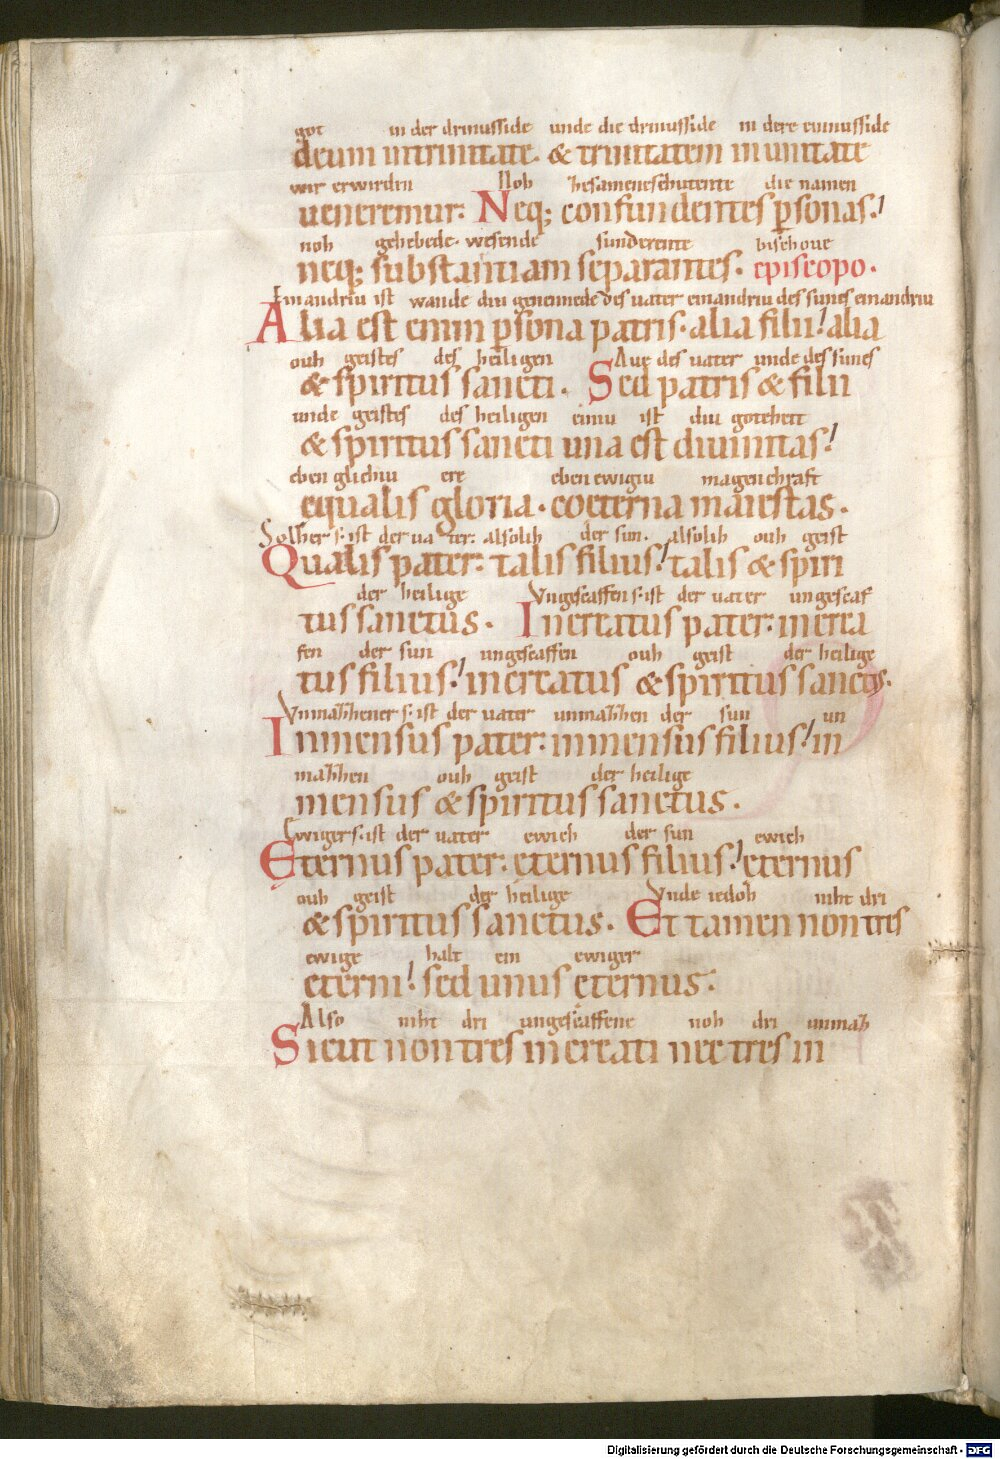 got in der drinusside unde die drinusside in dere einnusside
deum intrinitate. & trinitatem in unitate
wir erwirdin Noh besameneschutente die namen
ueneremur: Neq; confundentes p̱sonas!
noh gehebede. wesende sunderente bischoue
neq; substantiam separantes. episcopo.
Einandriu ist wande diu genennede des uater einandriu des sunes einandriu
Alia est enim p̱sona patris. alia filii! alia
ouh geistes des heiligen Aue des uater unde des sunes
& spiritus sancti. Sed patris & filii
unde geistes des heiligen einiu ist diu goteheit
& spiritus sancti una est diuinitas!
eben glichiu ere eben ewigiu magenchraft
equalis gloria. coeterna maiestas.
Solher s. ist der uater: alsolih der sun. alsolih ouh geist
Qualis pater: talis filius! talis & spiri
der heilige Vngescaffen s. ist der uater ungescaf
tus sanctus. Increatus pater: increa
fen der sun ungescaffen ouh geist der heilige
tus filius! increatus & spiritus sanctus.
Vnmahhener s. ist der uater unmahhen der sun un
Inmensus pater: inmensus filius! in
mahhen ouh geist der heilige
mensus & spiritus sanctus.
Ewiger s. ist der uater ewich der sun ewich
Eternus pater: eternus filius! eternus
ouh geist der heilige Vnde iedoh niht dri
& spiritus sanctus. Et tamen non tres
ewige halt ein ewiger
eterni! sed unus eternus:
Also niht dri ungescaffene noh dri unmah
Sicut non tres increati nec tres in
Digitalisierung gefördert durch die Deutsche Forschungsgemeinschaft - DFG